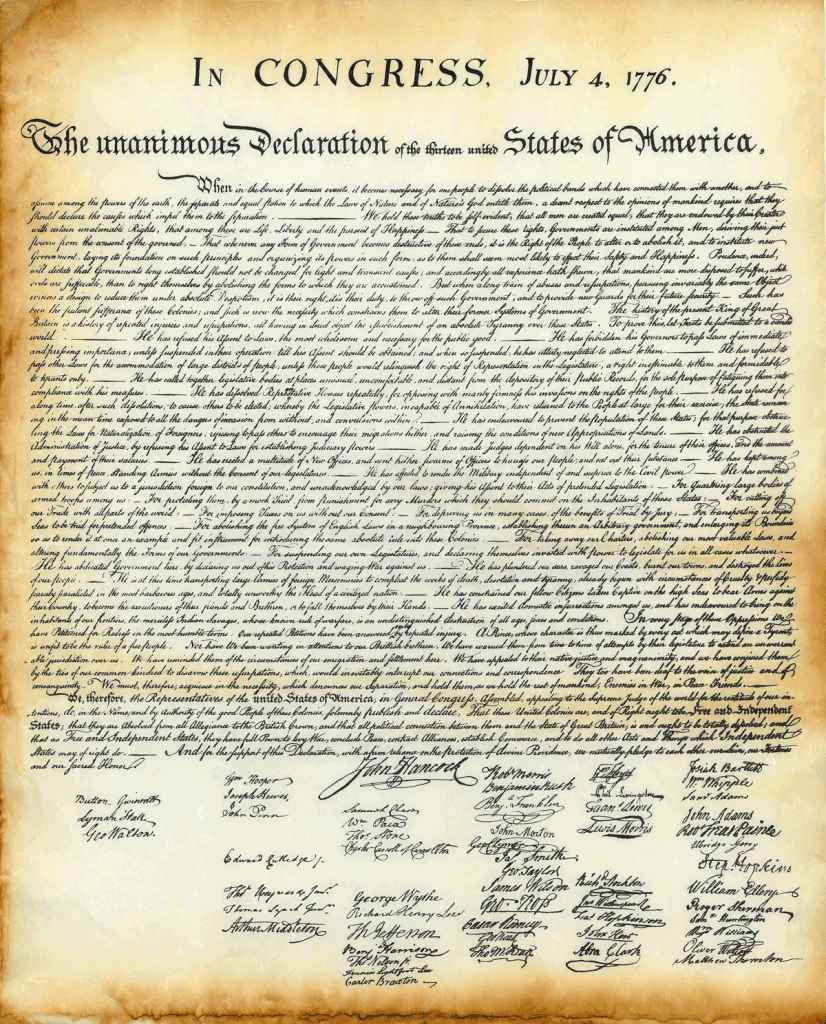 IN CONGRESS, JULY 4, 1776.
The unanimous Declaration of the thirteen united States of America,
When in the Course of human events, it becomes necessary for one people to dissolve the political bands which have connected them with another, and to
assume among the powers of the earth, the separate and equal station to which the Laws of Nature and of Nature's God entitle them, a decent respect to the opinions of mankind requires that they
should declare the causes which impel them to the separation. — We hold these truths to be self-evident, that all men are created equal, that they are endowed by their Creator
with certain unalienable Rights, that among these are Life, Liberty and the pursuit of Happiness. — That to secure these rights, Governments are instituted among Men, deriving their just
powers from the consent of the governed, — That whenever any Form of Government becomes destructive of these ends, it is the Right of the People to alter or to abolish it, and to institute new
Government, laying its foundation on such principles and organizing its powers in such form, as to them shall seem most likely to effect their Safety and Happiness. Prudence, indeed,
will dictate that Governments long established should not be changed for light and transient causes; and accordingly all experience hath shewn, that mankind are more disposed to suffer, while
evils are sufferable, than to right themselves by abolishing the forms to which they are accustomed. But when a long train of abuses and usurpations, pursuing invariably the same Object
evinces a design to reduce them under absolute Despotism, it is their right, it is their duty, to throw off such Government, and to provide new Guards for their future security. — Such has
been the patient sufferance of these Colonies; and such is now the necessity which constrains them to alter their former Systems of Government. The history of the present King of Great
Britain is a history of repeated injuries and usurpations, all having in direct object the establishment of an absolute Tyranny over these States. To prove this, let Facts be submitted to a candid
world. — He has refused his Assent to Laws, the most wholesome and necessary for the public good. — He has forbidden his Governors to pass Laws of immediate
and pressing importance, unless suspended in their operation till his Assent should be obtained; and when so suspended, he has utterly neglected to attend to them. — He has refused to
pass other Laws for the accommodation of large districts of people, unless those people would relinquish the right of Representation in the Legislature, a right inestimable to them and formidable
to tyrants only. — He has called together legislative bodies at places unusual, uncomfortable, and distant from the depository of their public Records, for the sole purpose of fatiguing them into
compliance with his measures. — He has dissolved Representative Houses repeatedly, for opposing with manly firmness his invasions on the rights of the people. — He has refused for
a long time, after such dissolutions, to cause others to be elected; whereby the Legislative powers, incapable of Annihilation, have returned to the People at large for their exercise; the State remain-
ing in the mean time exposed to all the dangers of invasion from without, and convulsions within. — He has endeavoured to prevent the population of these States; for that purpose obstruc-
ting the Laws for Naturalization of Foreigners; refusing to pass others to encourage their migrations hither, and raising the conditions of new Appropriations of Lands. — He has obstructed the
Administration of Justice, by refusing his Assent to Laws for establishing Judiciary powers. — He has made Judges dependent on his Will alone, for the tenure of their offices, and the amount
and payment of their salaries. — He has erected a multitude of New Offices, and sent hither swarms of Officers to harrass our people, and eat out their substance. — He has kept among
us, in times of peace, Standing Armies without the Consent of our legislatures. — He has affected to render the Military independent of and superior to the Civil power. — He has combined
with others to subject us to a jurisdiction foreign to our constitution, and unacknowledged by our laws; giving his Assent to their Acts of pretended Legislation: — For Quartering large bodies of
armed troops among us: — For protecting them, by a mock Trial, from punishment for any Murders which they should commit on the Inhabitants of these States: — For cutting off
our Trade with all parts of the world: — For imposing Taxes on us without our Consent: — For depriving us in many cases, of the benefits of Trial by Jury: — For transporting us beyond
Seas to be tried for pretended offences: — For abolishing the free System of English Laws in a neighbouring Province, establishing therein an Arbitrary government, and enlarging its Boundaries
so as to render it at once an example and fit instrument for introducing the same absolute rule into these Colonies: — For taking away our Charters, abolishing our most valuable Laws, and
altering fundamentally the Forms of our Governments: — For suspending our own Legislatures, and declaring themselves invested with power to legislate for us in all cases whatsoever. —
He has abdicated Government here, by declaring us out of his Protection and waging War against us. — He has plundered our seas, ravaged our Coasts, burnt our towns, and destroyed the lives
of our people. — He is at this time transporting large Armies of foreign Mercenaries to compleat the works of death, desolation and tyranny, already begun with circumstances of Cruelty & perfidy
scarcely paralleled in the most barbarous ages, and totally unworthy the Head of a civilized nation. — He has constrained our fellow Citizens taken Captive on the high Seas to bear Arms against
their Country, to become the executioners of their friends and Brethren, or to fall themselves by their Hands. — He has excited domestic insurrections amongst us, and has endeavoured to bring on the
inhabitants of our frontiers, the merciless Indian Savages, whose known rule of warfare, is an undistinguished destruction of all ages, sexes and conditions. In every stage of these Oppressions We
have Petitioned for Redress in the most humble terms: Our repeated Petitions have been answered only by repeated injury. A Prince, whose character is thus marked by every act which may define a Tyrant,
is unfit to be the ruler of a free people. Nor have We been wanting in attentions to our Brittish brethren. We have warned them from time to time of attempts by their legislature to extend an unwarrant-
able jurisdiction over us. We have reminded them of the circumstances of our emigration and settlement here. We have appealed to their native justice and magnanimity, and we have conjured them
by the ties of our common kindred to disavow these usurpations, which, would inevitably interrupt our connections and correspondence. They too have been deaf to the voice of justice and of
consanguinity. We must, therefore, acquiesce in the necessity, which denounces our Separation, and hold them, as we hold the rest of mankind, Enemies in War, in Peace Friends.
We, therefore, the Representatives of the united States of America, in General Congress, Assembled, appealing to the Supreme Judge of the world for the rectitude of our in-
tentions, do, in the Name, and by Authority of the good People of these Colonies, solemnly publish and declare, That these United Colonies are, and of Right ought to be Free and Independent
States; that they are Absolved from all Allegiance to the British Crown, and that all political connection between them and the State of Great Britain, is and ought to be totally dissolved; and
that as Free and Independent States, they have full Power to levy War, conclude Peace, contract Alliances, establish Commerce, and to do all other Acts and Things which Independent
States may of right do. — And for the support of this Declaration, with a firm reliance on the protection of divine Providence, we mutually pledge to each other our Lives, our Fortunes
and our sacred Honor.
Button Gwinnett
Lyman Hall
Geo Walton.
Wm Hooper
Joseph Hewes,
John Penn
Edward Rutledge /.
Thos Heyward Junr.
Thomas Lynch Junr.
Arthur Middleton
John Hancock
Samuel Chase
Wm Paca
Thos Stone
Charles Carroll of Carrollton
George Wythe
Richard Henry Lee
Th Jefferson
Benj Harrison
Thos Nelson jr.
Francis Lightfoot Lee
Carter Braxton
Robt Morris
Benjamin Rush
Benja Franklin
John Morton
Geo Clymer
Jas Smith
Geo Taylor
James Wilson
Geo. Ross
Caesar Rodney
Geo Read
Tho M:Kean
Wm Floyd
Phil. Livingston
Frans Lewis
Lewis Morris
Richd Stockton
Jno Witherspoon
Fras Hopkinson
John Hart
Abra Clark
Josiah Bartlett
Wm Whipple
Saml Adams
John Adams
Robt Treat Paine
Elbridge Gerry
Step. Hopkins
William Ellery
Roger Sherman
Saml Huntington
Wm Williams
Oliver Wolcott
Matthew Thornton